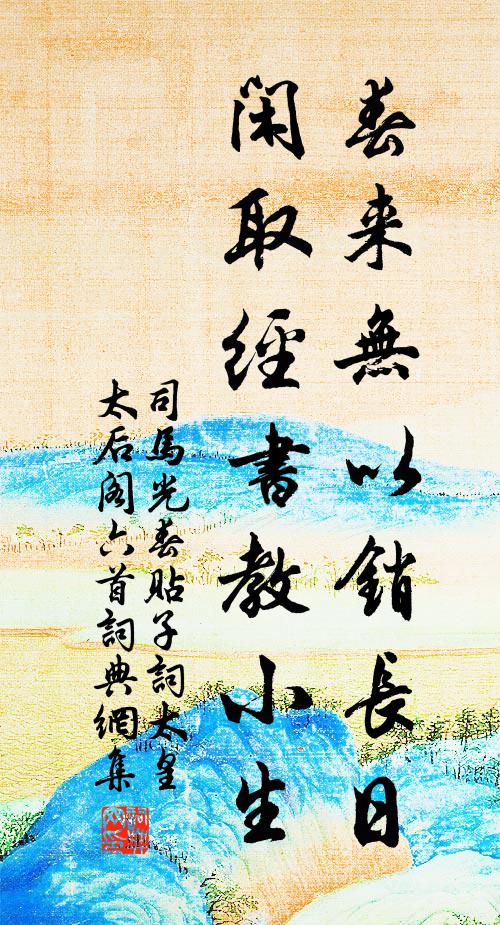 春来無以銷長日
閑取經書教小生
司馬光春貼子詞太皇
太后阁六首詞典網集